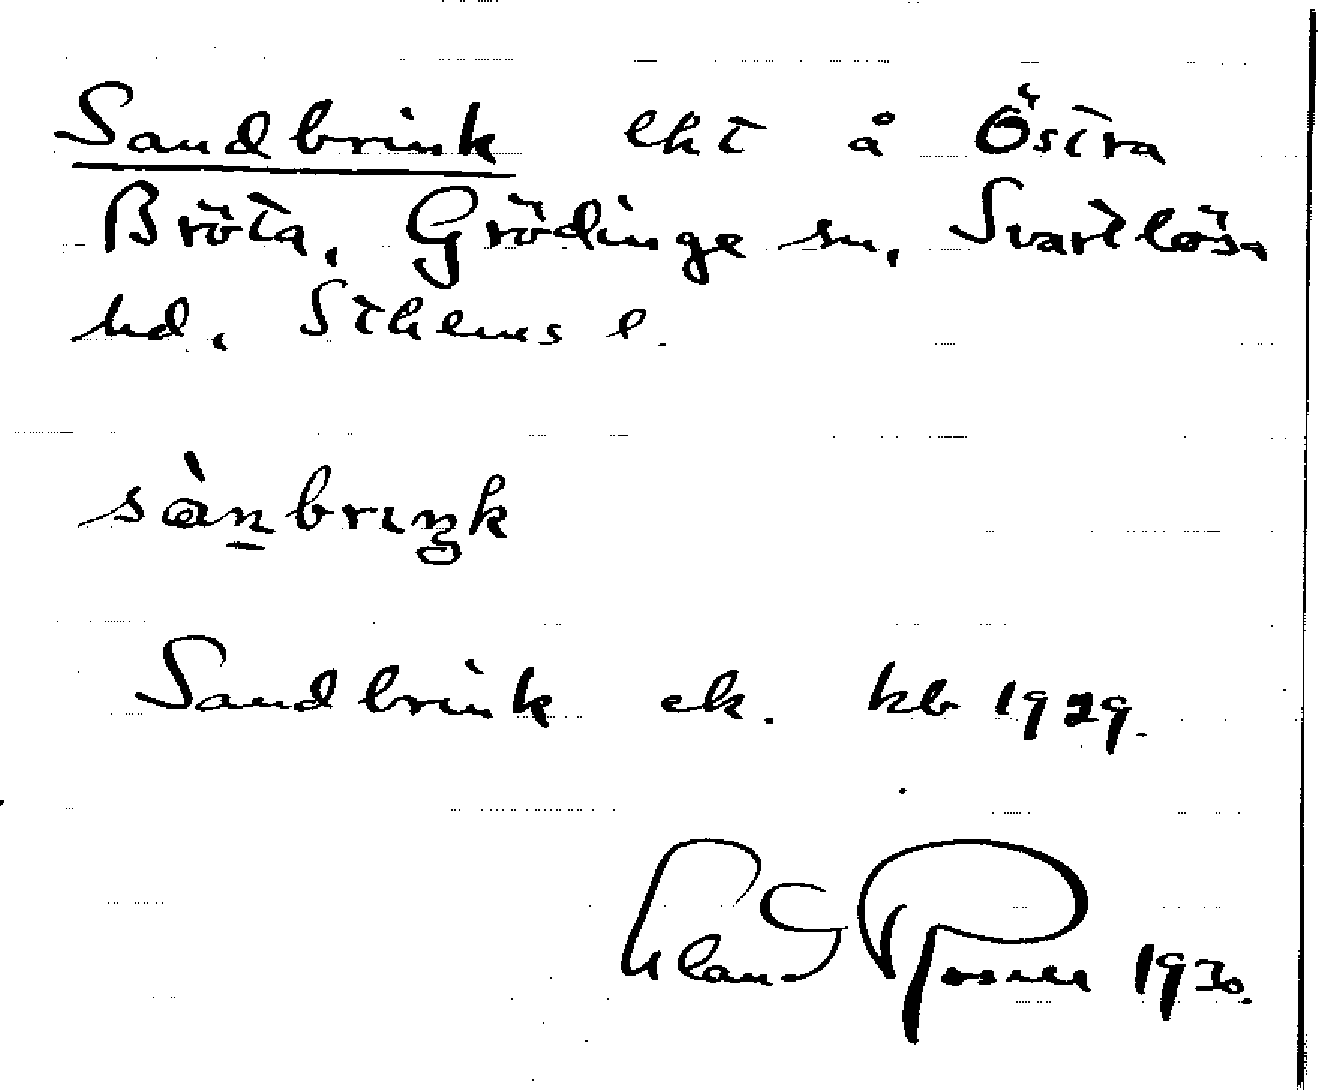 Sandbrink lht å Östra
Bröta, Grödinge sn, Svartlösa
hd, Sthlms l.
sànbriŋk
Sandbrink ek. kb 1929.
1930.